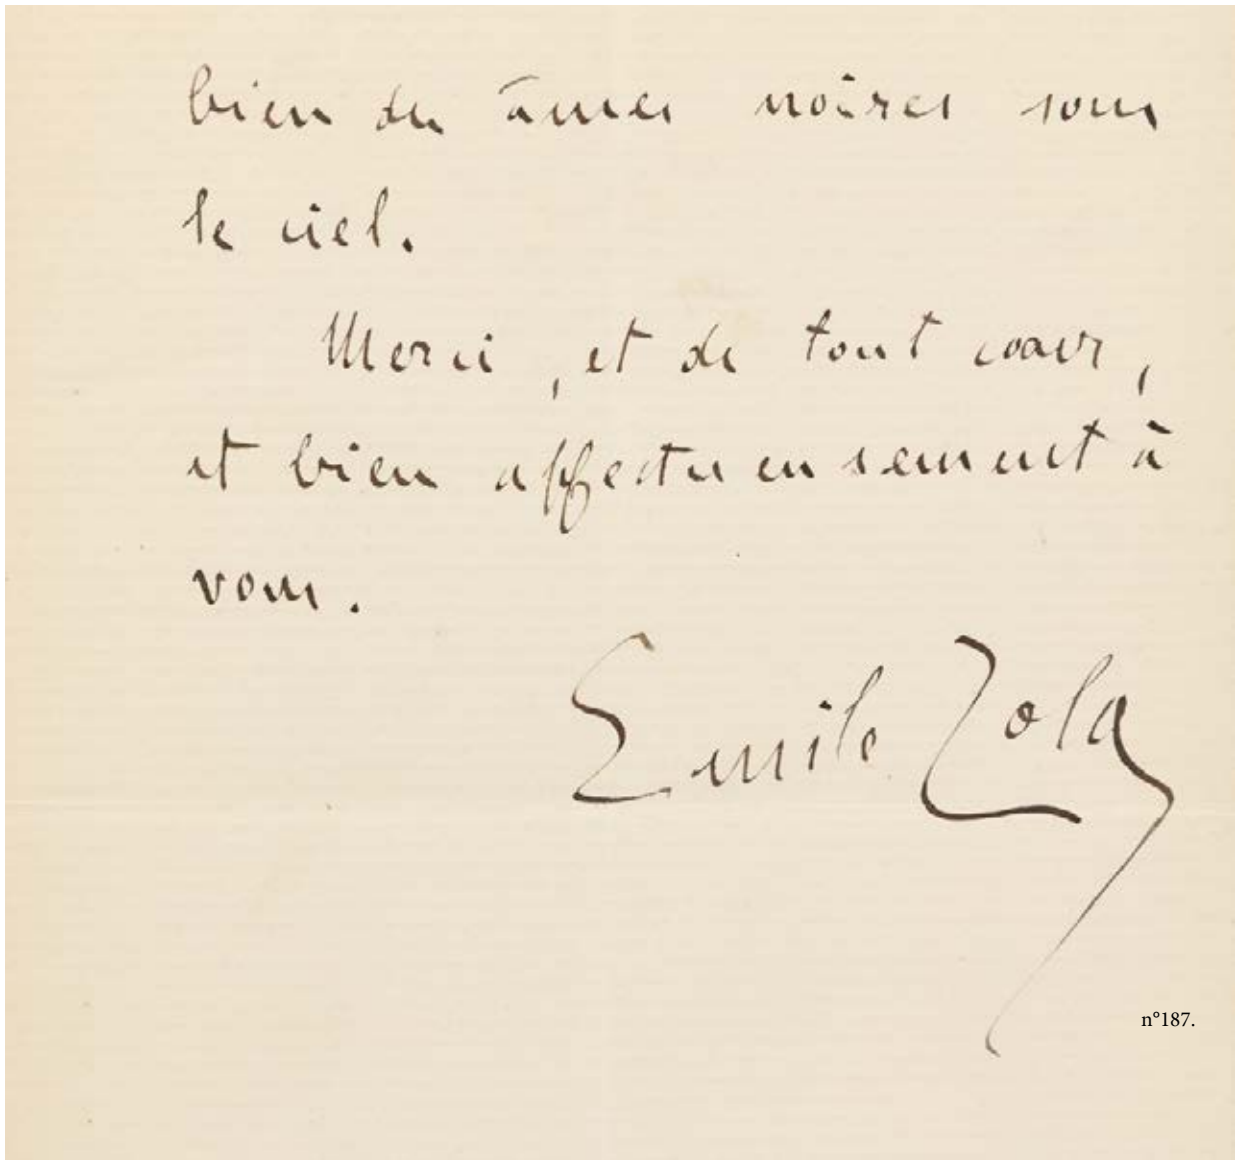 bien des âmes noires sous
le ciel.
Merci, et de tout cœur,
et bien affectueusement à
vous.
Emile Zola
n°187.